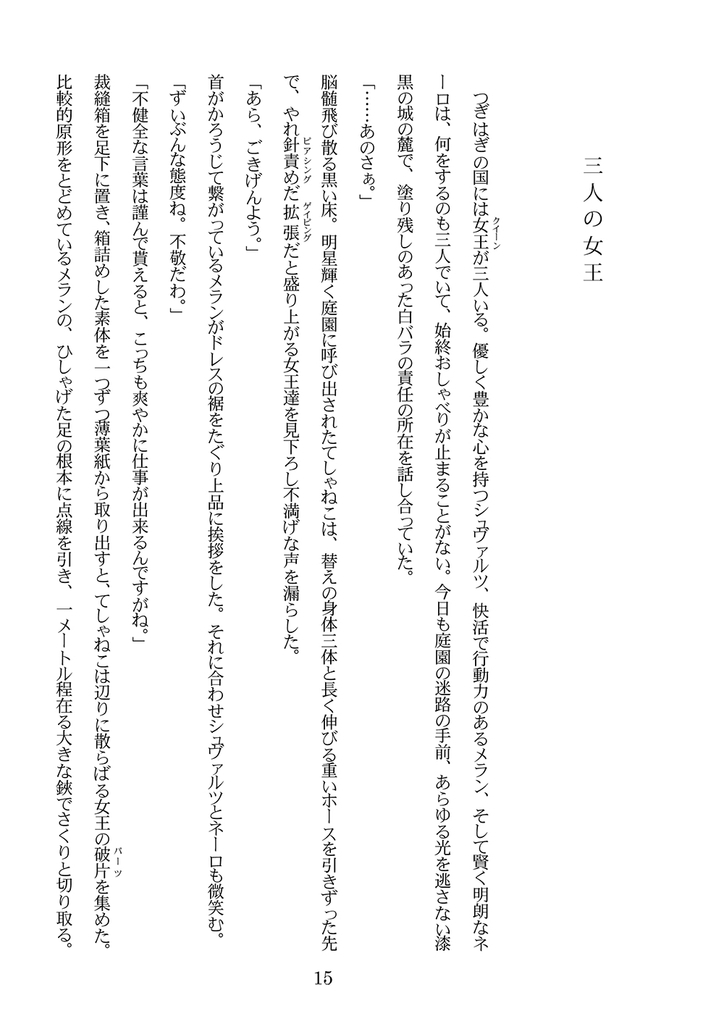 三人の女王
つぎはぎの国には女王が三人いる。優しく豊かな心を持つシュヴァルツ、快活で行動力のあるメラン、そして賢く明朗なネ
クイーン
ーロは、何をするのも三人でいて、始終おしゃべりが止まることがない。今日も庭園の迷路の手前、あらゆる光を逃さない漆
黒の城の麓で、塗り残しのあった白バラの責任の所在を話し合っていた。
「……あのさぁ。」
脳髄飛び散る黒い床。明星輝く庭園に呼び出されたてしゃねこは、替えの身体三体と長く伸びる重いホースを引きずった先
で、やれ針責めだ拡張だと盛り上がる女王達を見下ろし不満げな声を漏らした。
ピアシング
ゲイピング
「あら、ごきげんよう。」
首がかろうじて繋がっているメランがドレスの裾をたぐり上品に挨拶をした。それに合わせシュヴァルツとネーロも微笑む。
「ずいぶんな態度ね。不敬だわ。」
「不健全な言葉は謹んで貰えると、こっちも爽やかに仕事が出来るんですがね。」
裁縫箱を足下に置き、箱詰めした素体を一つずつ薄葉紙から取り出すと、てしゃねこは辺りに散らばる女王の破片を集めた。
パーツ
比較的原形をとどめているメランの、ひしゃげた足の根本に点線を引き、一メートル程在る大きな鋏でさくりと切り取る。
15